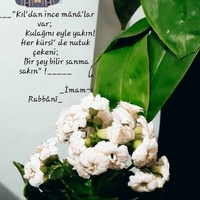 ___"Kıl'dan ince mânâ'lar
var;
Kulağını eyle yakın!
Her kürsî' de nutuk
çekeni;
Bir şey bilir sanma
sakın" !_____
_İmam-ı
Rabbânî_